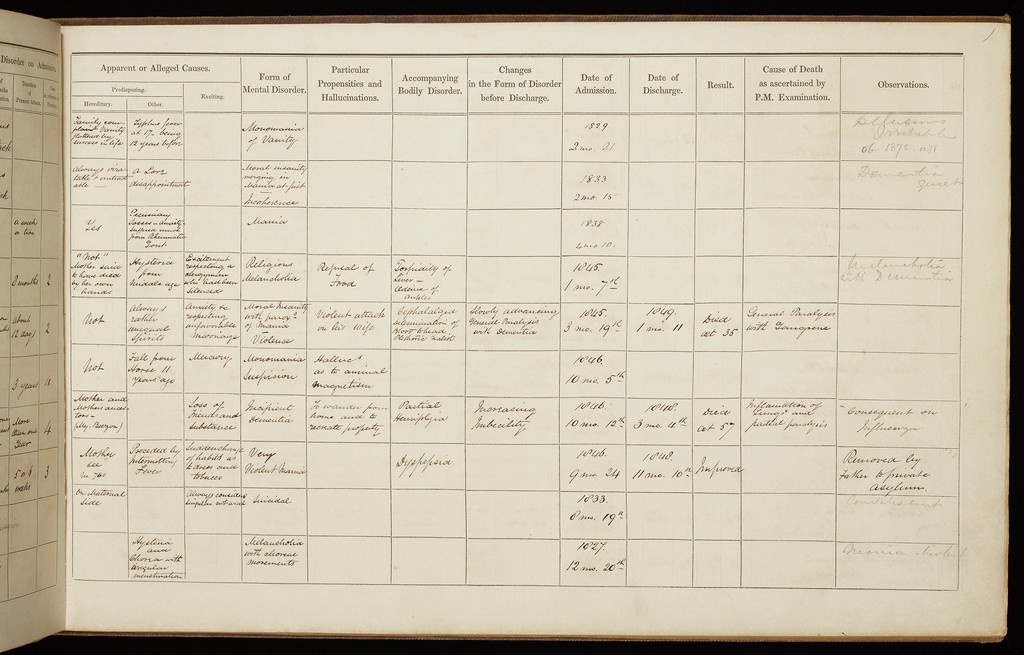 Disorder on Admission
Duration of Present Attack.
Apparent or Alleged Causes.
Predisposing.
Hereditary.
Other.
Exciting.
Form of
Mental Disorder.
Particular
Propensities and
Hallucinations.
Accompanying
Bodily Disorder.
Changes
in the Form of Disorder
before Discharge.
Date of
Admission.
Date of
Discharge.
Result.
Cause of Death
as ascertained by
P.M. Examination.
Observations.
Family com-
plaint Vanity
flattered by
success in life
Typhus fever
at 17. being
12 years before
Monomania
of Vanity
1829
2 mo. 21
ob. 1872
Always irri-
table
a Love
disappointment
Moral insanity
merging in
Mania at first
Incoherence
1833
2 mo. 15
Dementia
quiet
a week
or two
Yes
Pecuniary
losses
from Rheumatic
Gout
Mania
1838
4 mo 10.
8 months
2
"Not"
Mother said
to have died
by her own
hands
Hysteria
from
middle age
Excitement
respecting a
clergyman
who had been
silenced
Religious
Melancholia
Refusal of
Food
Torpidity of
Liver –
Oedema of
ankles
1845.
1 mo. 7th
Melancholia
with Dementia
About
12 days
2
Not
Always
rather
unequal
spirits
Anxiety &
respecting
unfavorable
marriage
Moral Insanity
with parox.s
of Mania
Violence
Violent attack
on his wife
Cephalalgia
determination of
blood to head
Slowly advancing
General Paralysis
with Dementia
1845.
3 mo. 19th
1849.
1 mo. 11
Died
aet 35
General Paralysis
with Gangrene
3 years
4
Not
Fall from
Horse 11
years ago
Mercury
Monomania
Suspicion
Halluc.s
as to animal
magnetism
1846.
10 mo. 5th
More
than one
Year
4
Mother and
Mothers ances-
tors –
Loss of
friends and
Substance
Incipient
Dementia
To wander from
home and to
secreate property
Partial
Hemiplegia
Increasing
Imbecility
1846.
10 mo. 12th
1848.
3 mo. 4th
Died
aet 57
Inflammation of
Lungs and
partial paralysis
Consequent on
Influenza
5 or 6
weeks
3
Mother
see
Preceded by
Intermitting
Fever
Sudden change
of habits as
to beer and
tobacco
Very
Violent Mania
Dyspepsia
1846.
9 mo. 24
1848
11 mo. 10th
Improved
Removed by
Father to private
Asylum.
On Maternal
Side
Always considered
Suicidal
1833.
8 mo. 19th
Hysteria
and
Chorea with
irregular
menstruation
Melancholia
with choreac
movements
1827.
12 mo. 20th